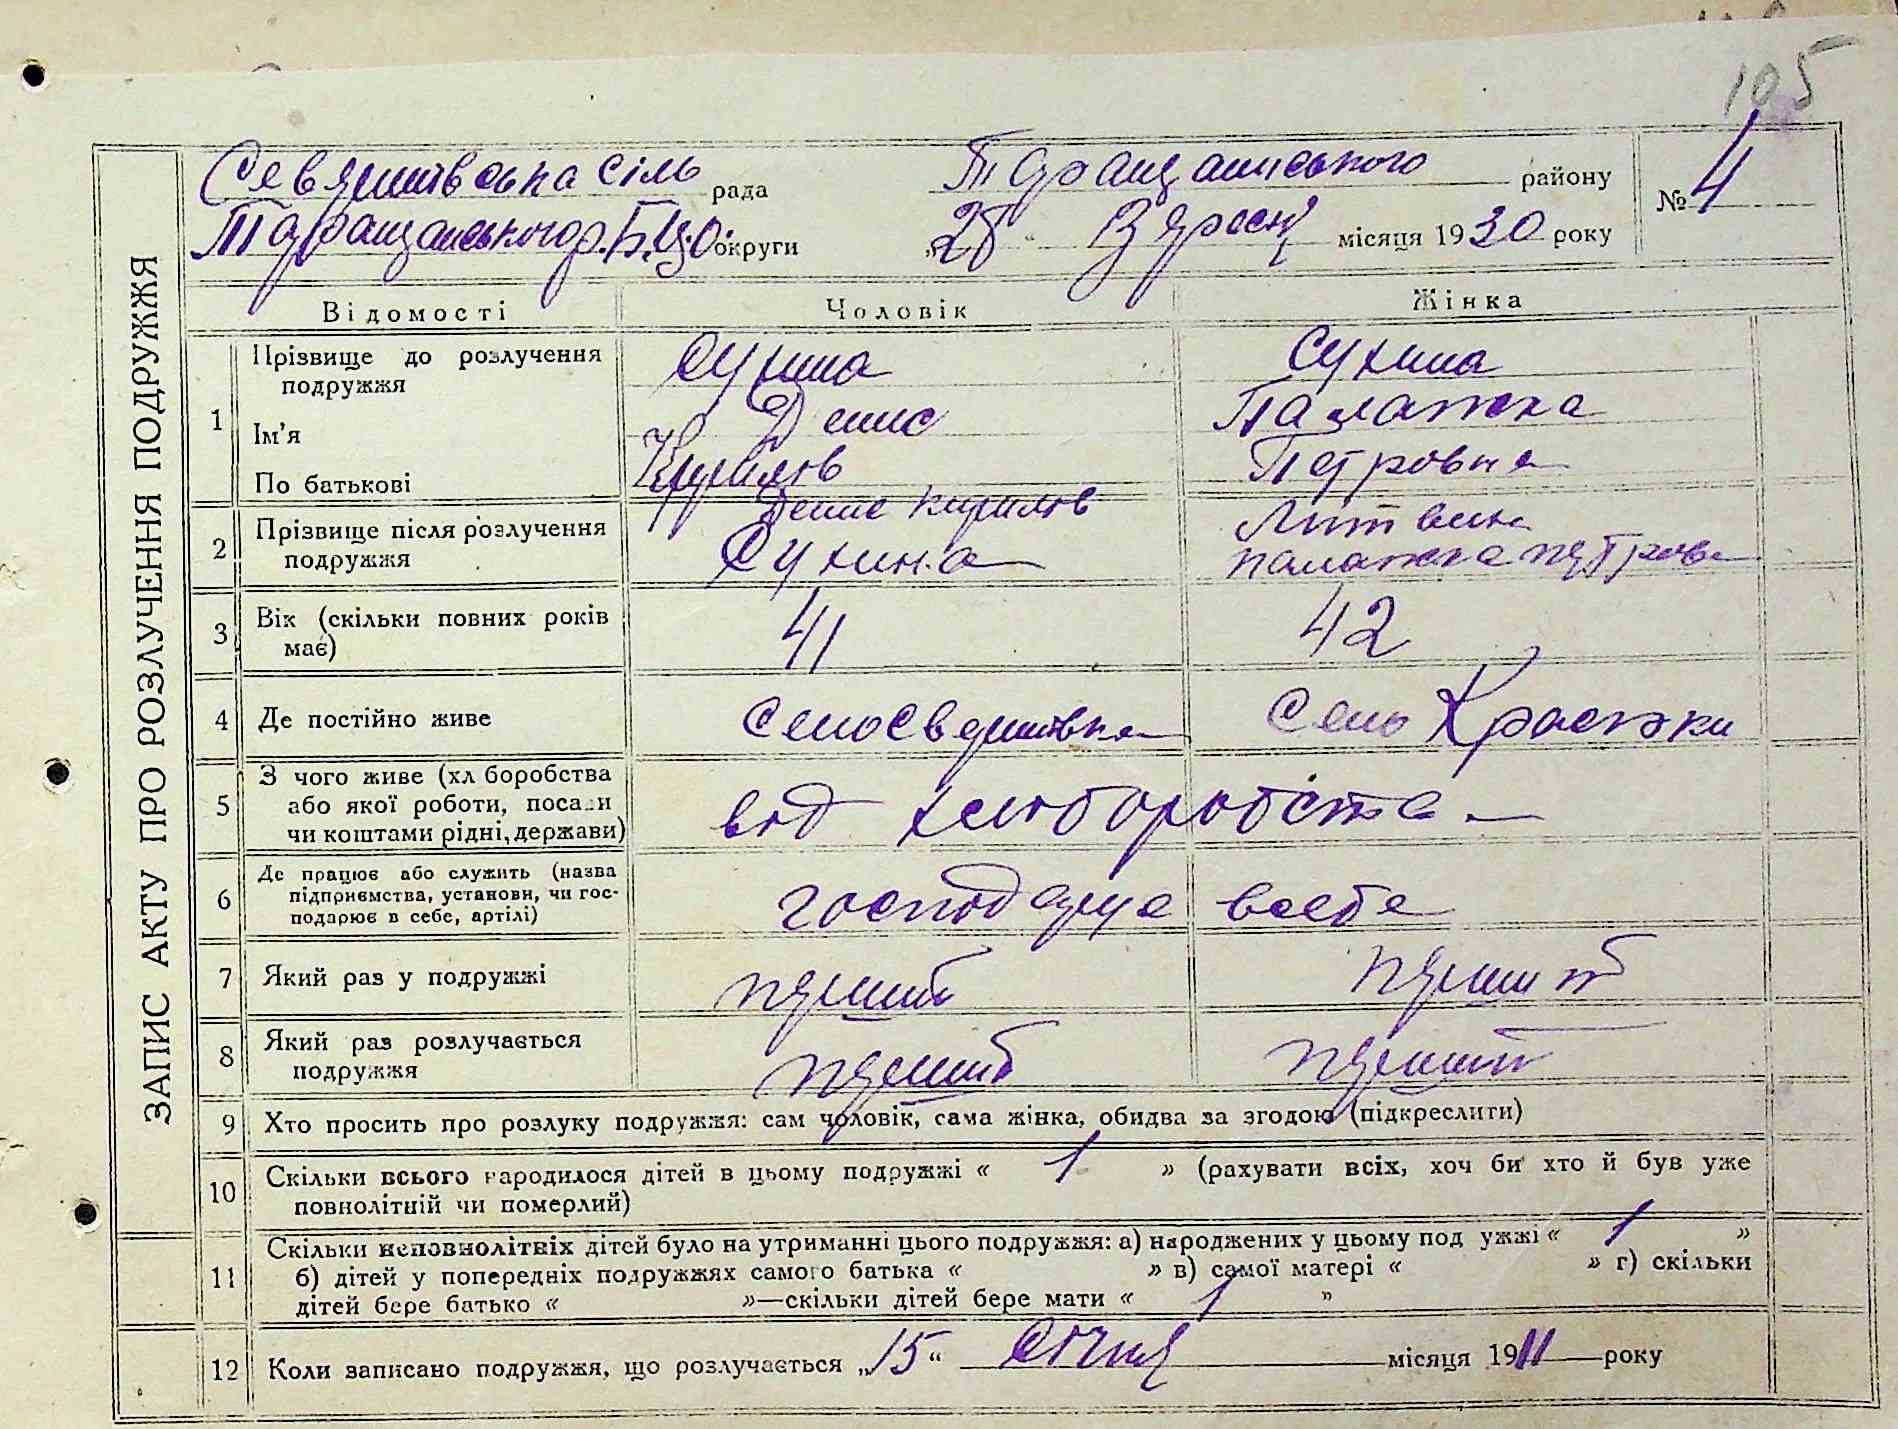 105
ЗАПИС АКТУ ПРО РОЗЛУЧЕННЯ ПОДРУЖЖЯ
сіль рада Таращанського району № 4
Таращанського р. Б.Ц.О. округи „28“ місяця 1930 року
Відомості Чоловік Жінка
1 Прізвище до розлучення подружжя Сухина Сухина
Ім'я Денис Палажка
По батькові Кирилов Петровна
2 Прізвище після розлучення подружжя Денис Кирилов Сухина Литвин Палажка
3 Вік (скільки повних років має) 41 42
4 Де постійно живе село
5 З чого живе (хл боробства або якої роботи, поса и чи коштами рідні, держави) від хліборобства
6 Де працює або служить (назва підприємства, установи, чи господарює в себе, артілі) господарує всебе
7 Який раз у подружжі перший перший
8 Який раз розлучається подружжя перший перший
9 Хто просить про розлуку подружжя: сам чоловік, сама жінка, обидва за згодою (підкреслити)
10 Скільки всього народилося дітей в цьому подружжі « 1 » (рахувати всіх, хоч би хто й був уже
повнолітній чи померлий)
11 Скільки неповнолітніх дітей було на утриманні цього подружжя: а) народжених у цьому под ужжі « 1 »
б) дітей у попередніх подружжях самого батька « » в) самої матері « » г) скільки
дітей бере батько « »—скільки дітей бере мати « 1 »
12 Коли записано подружжя, що розлучається „15“ Січня місяця 1911 року